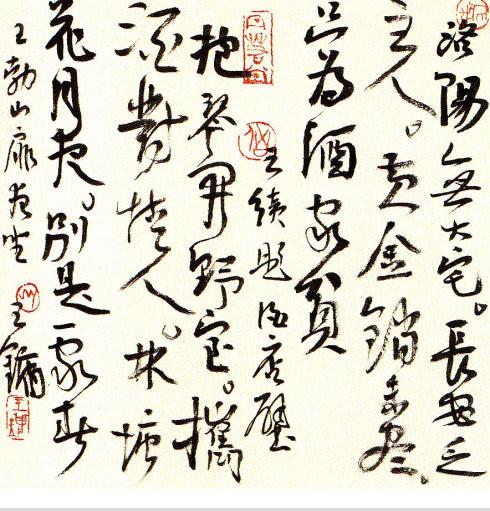 洛陽無大宅。長安乏
主人。黄金銷未盡、
只為酒家貧
王績題酒店壁
抱琴開野室。攜
酒對情人。林塘
花月夜。別是一家春
王勃山扉夜坐 王鏞